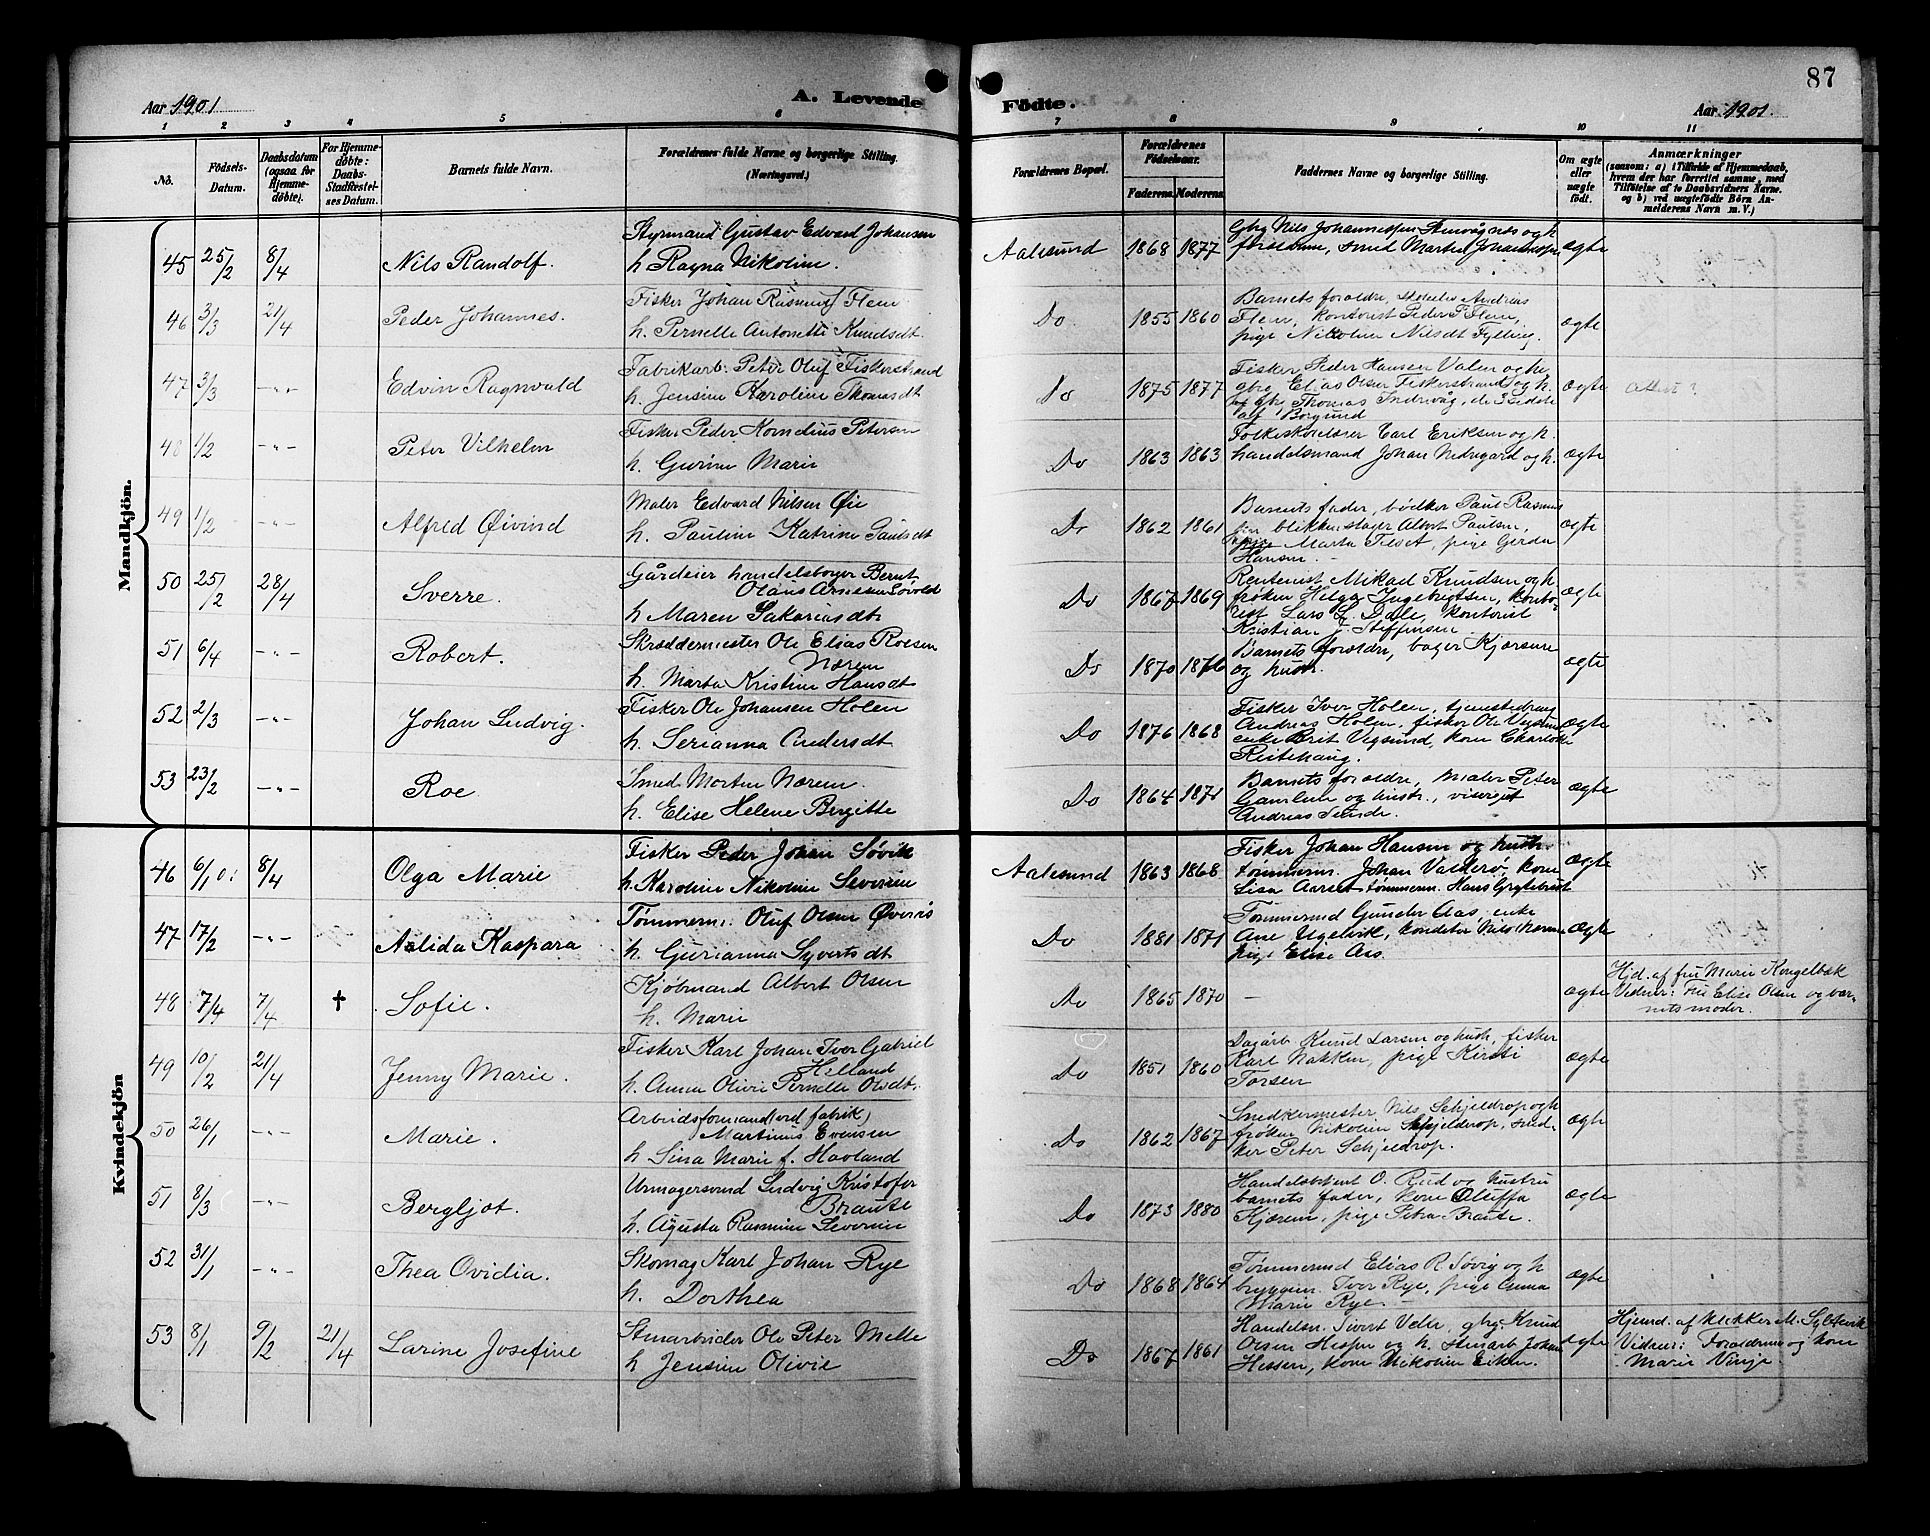 87
Aar 1901
A. Levende
Födte.
Aar 1901.
1 2 3 4 5 6 7 8 9 10 11
No.
Födsels-Datum.
Daabsdatum (ogsaa for Hjemmedöbte).
For Hjemmedöbte: Daabs-Stadfæstelses Datum.
Barnets fulde Navn.
Forældrenes fulde Navne og borgerlige Stilling.
(Næringsvei.)
Forældrenes Bopæl.
Forældrenes Födselsaar.
Faderens. Moderens.
Faddernes Navne og borgerlige Stilling.
Om ægte eller uægte födt.
Anmærkninger
(saasom: a) i Tilfælde af Hjemmedaab, hvem der har forrettet samme, med Tilföielse af to Daabsvidners Navne, og b) ved uægtefödte Börn Anmelderens Navn m. V.)
Mandkjön.
45 25/2 8/4 Nils Randolf.
Styrmand Gustav Edvard Johansen
h. Ragna Nikoline.
Aalesund 1868 1877
Gbrg Nils Johannessen og h
smed Martin Johannessen
ægte
46 3/3 21/4 Peder Johannes.
Fisker Johan Rasmus Flem
h. Pernelle Antonette Knudsdt.
Do 1855 1860
Barnets forældre, Andreas
Flem, kontorist Peder P Flem,
pige Nikoline Nilsdt Fylling.
ægte
47 3/3 -"- Edvin Ragnvald
Fabrikarb. Peter Oluf Fiskerstrand
h. Jensine Karoline Thomasdt
Do 1875 1877
Fisker Peder Hansen Valen og h.
gbrg Elias Olsen Fiskerstrand og h.
gbr Thomas Indrevåg, de 3 sidste
af Borgund
ægte
48 1/2 -"- Peter Vilhelm
Fisker Peder Kornelius Petersen
h. Gurine Marie
Do 1863 1863
Folkeskolelærer Carl Eriksen og h.
handelsmand Johan Nedregard og h.
ægte
49 1/2 -"- Alfred Øivind
Maler Edvard Nilsen Øie
h. Pauline Katrine Paulsdt
Do 1862 1861
Barnets fader, bødker Paul Rasmus
sen, blikkenslager Albert Paulsen,
pige Marta Tilset, pige Gerda
Hansen.
ægte
50 25/2 28/4 Sverre.
Gårdeier handelsborger Bernt
Olaus Arnesen Løvold
h. Maren Sakariasdt.
Do 1867 1869
Rentenist Mikael Knudsen og h.
frøken Helga Ingebrigtsen, konto-
rist Lars L. Dale, kontorist
Kristian J. Steffensen
ægte
51 6/4 -"- Robert.
Skræddermester Ole Elias Roesen
Nærem
h. Marta Kristine Hansdt
Do 1870 1876
Barnets forældre, bager Kjærsem
og hustr.
ægte
52 2/3 -"- Johan Ludvig.
Fisker Ole Johansen Holen
h. Serianna Andersdt
Do 1876 1868
Fisker Iver Holen, tjenestedreng
Andreas Holen, fisker Ole Vegsund
enke Brit Vegsund, kone Charlotte
Reitehaug.
ægte
53 23/2 -"- Roe.
Smed Morten Nærem
h. Elise Helene Birgitte
Do 1864 1871
Barnets forældre, Maler Peter
Gamlem og hustr.,
Andreas Sunde.
ægte
Kvindekjön
46 6/1 01 8/4 Olga Marie
Fisker Peder Johan Søvik
h. Karoline Nikoline Severine
Aalesund 1863 1868
Fisker Johan Hansen og hustr.
tømmerm. Johan Valkerø, kone
Lisa Aarset tømmerm. Hans Grytebust
ægte
47 17/2 -"- Aalida Kaspara
Tømmerm. Oluf Olsen Øvreås
h. Gurianna Syvertsdt
Do 1881 1871
Tømmermd Gunder Aas, enke
Ane Ugelvik, konditor Nils Nærem
pige Elise Aas.
ægte
48 7/4 7/4 † Sofie.
Kjøbmand Albert Olsen
h. Marie
Do 1865 1870 – ægte
Hjd. af fru Marie Kongelbæk
Vidner: Fru Elise Olsen og bar-
nets moder.
49 10/2 21/4 Jenny Marie.
Fisker Karl Johan Iver Gabriel
Helland
h. Anna Olivie Pernelle Olsdt.
Do 1851 1860
Dagarb Knud Larsen og hustr, fisker
Karl Nakken, pige Kirsti
Torsen
ægte
50 26/1 -"- Marie.
Arbeidsformand (ved fabrik)
Martinus Evensen
h. Sina Marie f. Havland
Do 1862 1867
Snedkermester Nils Schjeldrop og h
frøken Nikoline Schjeldrop, sned-
ker Peter Schjeldrop.
ægte
51 8/3 -"- Bergljot.
Urmagersvend Ludvig Kristofer
Braute
h. Agusta Rasmine Severine
Do 1873 1880
Handelsbetjent O. Rud og hustru
barnets fader, kone Oluffa
Kjærem, pige Petra Braute.
ægte
52 31/1 -"- Thea Ovidia.
Skomag Karl Johan Rye
h. Dorthea
Do 1868 1864
Tømmermd Elias R. Søvig og h
bryggem. Iver Rye, pige Anna
Marie Rye
ægte
53 8/1 9/2 21/4 Larine Josefine
Stenarbeider Ole Peter Melle
h Jensine Olivie
Do 1867 1861
Handelsm. Sivert Velle, gbrg Knud
Olsen Hessen og h. stenarb Johan
Hessen, kone Nikoline Eiken.
ægte
Hjemd. af klokker M. Sybstevik
Vidner: Forældrene og kone
Marie Vinje